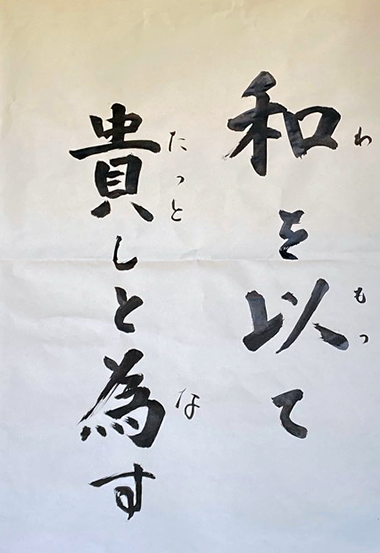 和を以て
わ
もっ
貴しと為す
たっと
な